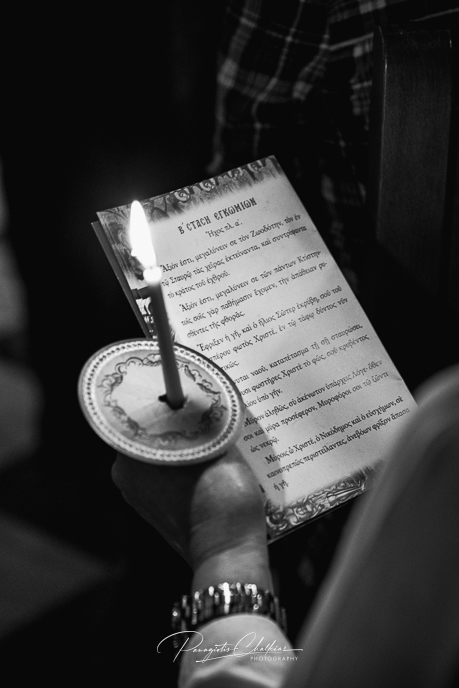 Β΄ ΣΤΑΣΗ ΕΓΚΩΜΙΩΝ
Ἦχος πλ. α΄.
Ἄξιόν ἐστι, μεγαλύνειν σὲ τὸν Ζωοδότην, τὸν ἐν
τῷ Σταυρῷ τὰς χεῖρας ἐκτείναντα, καὶ συντρίψαντα
τὸ κράτος τοῦ ἐχθροῦ.
Ἄξιόν ἐστι, μεγαλύνειν σὲ τὸν πάντων Κτίστην·
τοῖς σοῖς γὰρ παθήμασιν ἔχομεν, τὴν ἀπάθειαν ῥυ-
σθέντες τῆς φθορᾶς.
Ἔφριξεν ἡ γῆ, καὶ ὁ ἥλιος Σῶτερ ἐκρύβη, σοῦ τοῦ
ἀνεσπέρου φωτὸς Χριστέ, ἐν τῷ τάφῳ δύντος
ναοῦ, καταπέτασμα τῇ σῇ σταυρώσει,
φωστῆρες Χριστὲ τὸ φῶς, σοῦ κρυβέντος
ὑπὸ γῆν.
Μύρον ἀληθῶς, σὺ ἀκένωτον ὑπάρχεις Λόγε· ὅθεν
σοι καὶ μύρα προσέφερον, Μυροφόροι σοι τῷ ζῶντι
ὡς νεκρῷ.
Μύροις σὲ Χριστέ, ὁ Νικόδημος καὶ ὁ εὐσχήμων, σὲ
καινοπρεπῶς περιστείλαντες, ἀνεβόων· φρῖξον ἅπασα
ἡ γῆ.
Panagiotis Chalkias
PHOTOGRAPHY